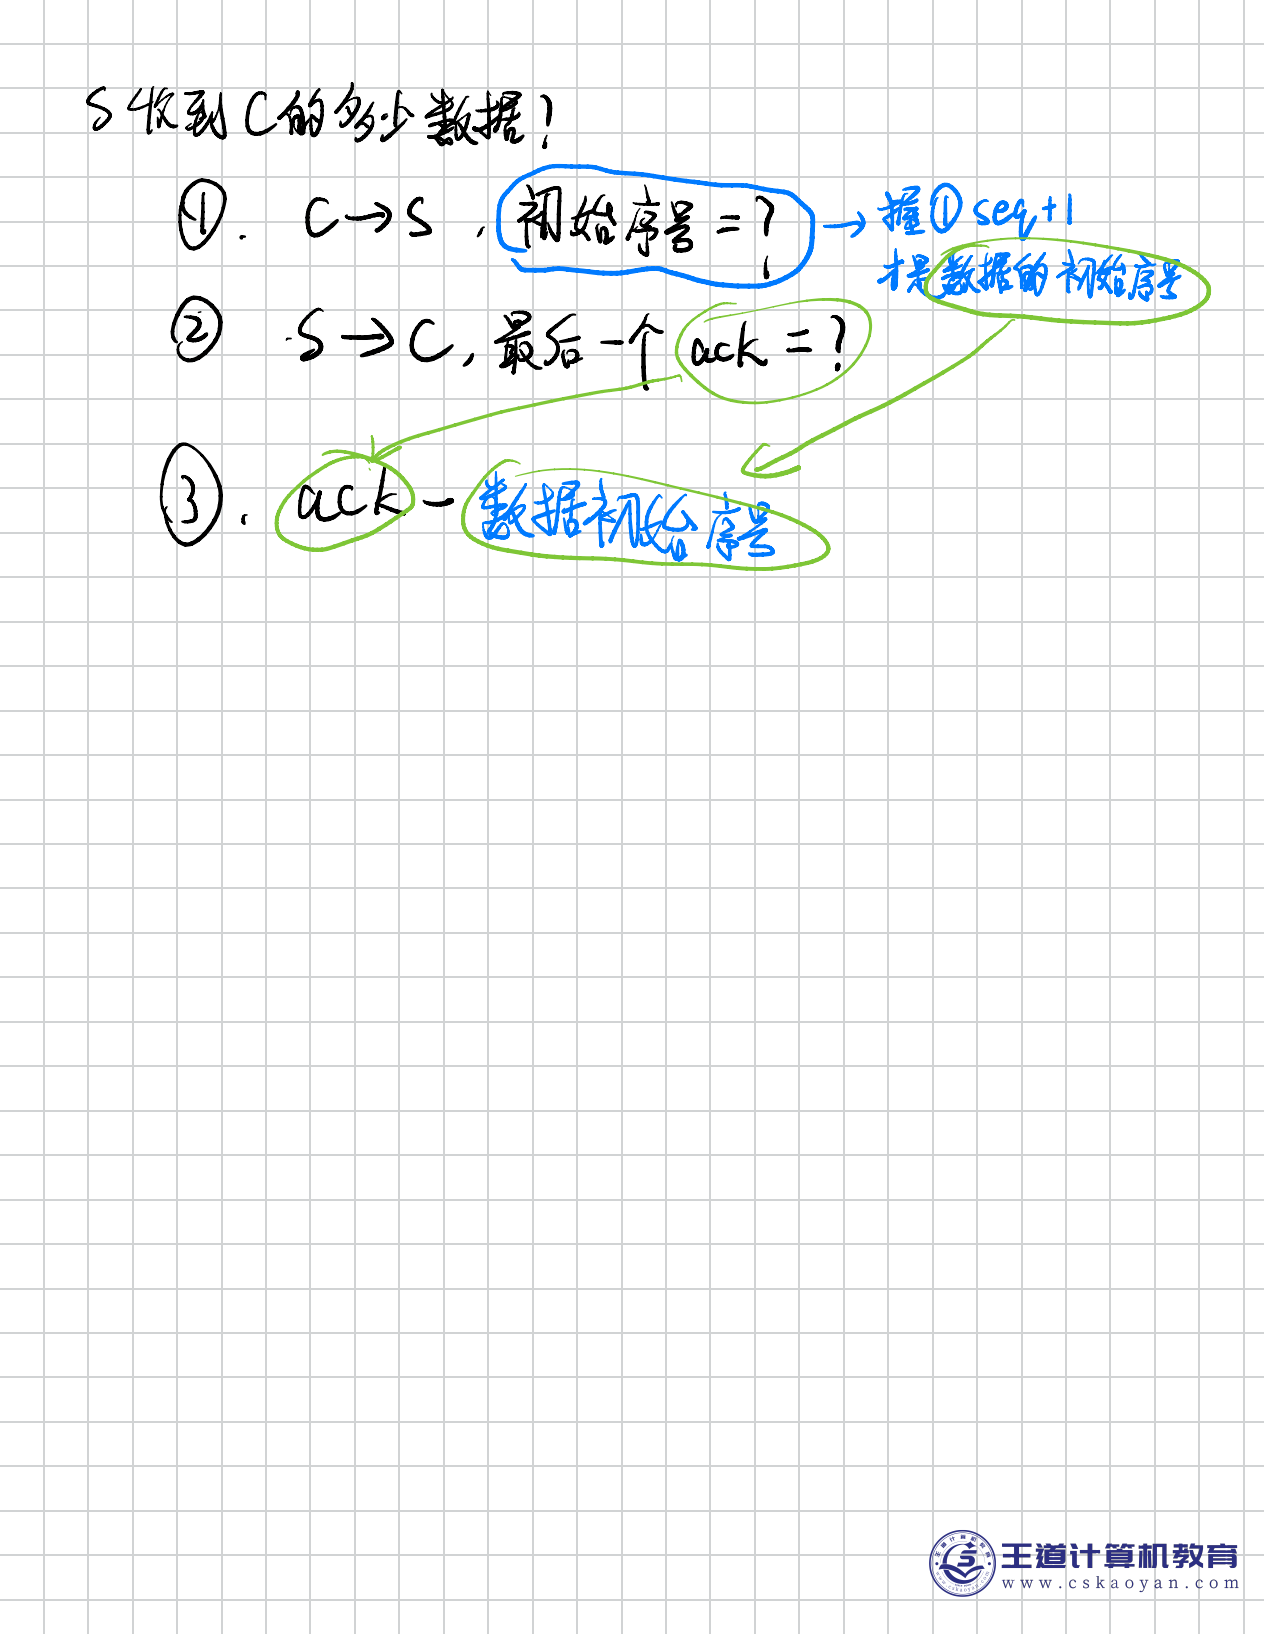 S收到C的多少数据?
①. C→S, 初始序号=? → 握①seq+1
才是数据的初始序号
② S→C, 最后一个ack=?
③. ack-数据初始序号
王道计算机教育
www.cskaoyan.com